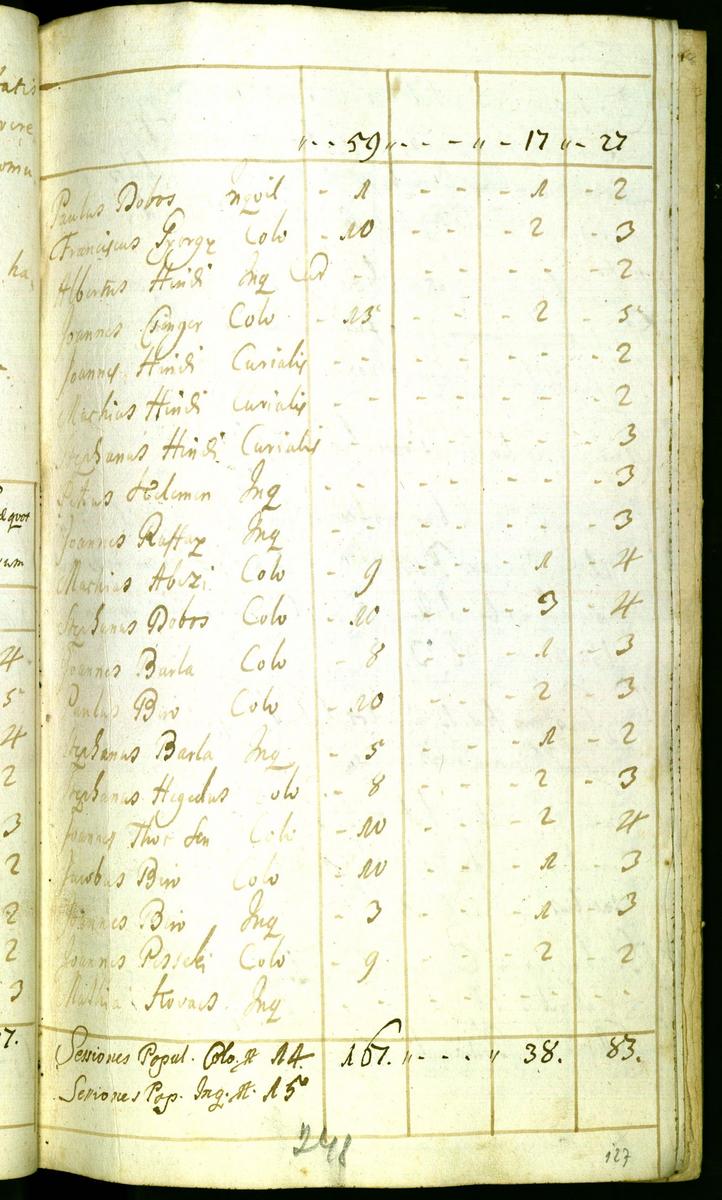 59 17 27
Paulus Dobos Inquil 1 1 2
Franciscus György Colo 10 2 3
Albertus Hindi Inq 2
Joannes Csenger Colo 15 2 5
Joannes Hindi Curialis 2
Mathias Hindi Curialis 2
Stephanus Hindi Curialis 3
Petrus Inq 3
Joannes Inq 3
Mathias Colo 9 1 4
Stephanus Dobos Colo 10 3 4
Joannes Barla Colo 8 1 3
Paulus Biro Colo 10 2 3
Stephanus Barla Inq 5 1 2
Stephanus Hegedus Colo 8 2 3
Joannes Thot Sen Colo 10 2 4
Jacobus Biro Colo 10 1 3
Joannes Biro Inq 3 1 3
Joannes Colo 9 2 2
Mathia Kovacs Inq
Sessiones Popul. Colo. 14. 167. 38. 83.
Sessiones Pop. Inq. 15
248
127